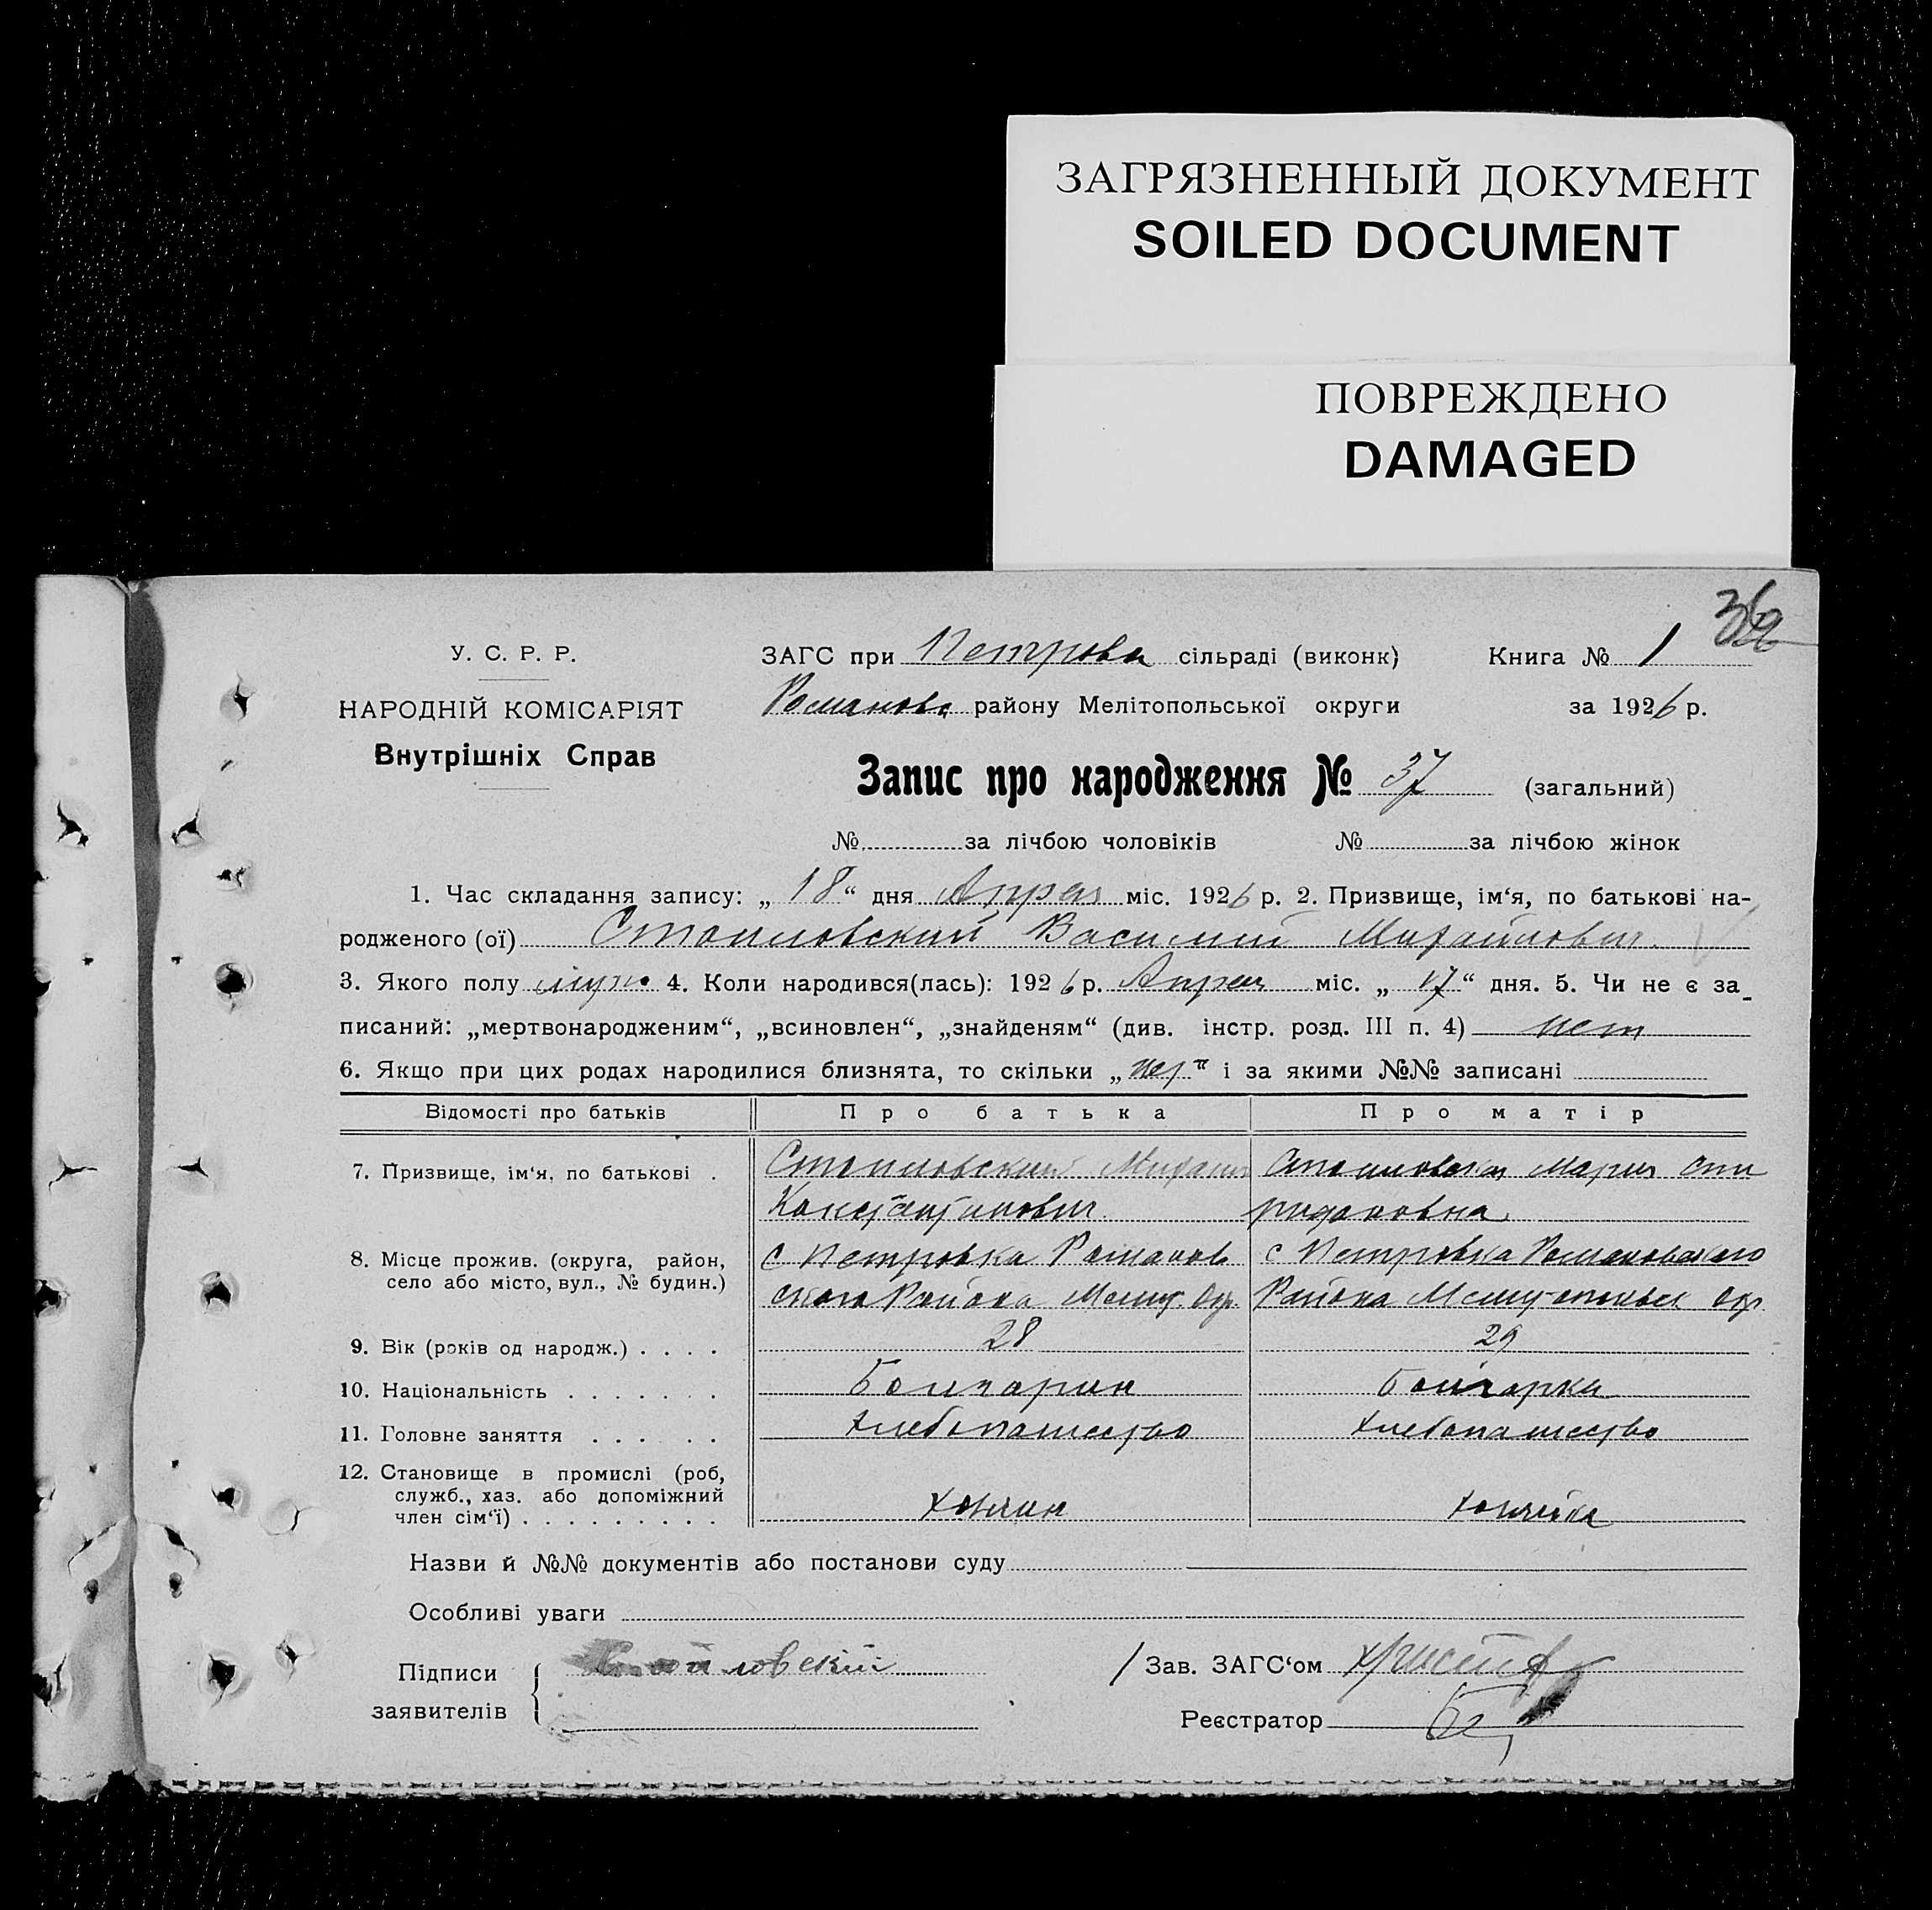 ЗАГРЯЗНЕННЫЙ ДОКУМЕНТ
SOILED DOCUMENT
ПОВРЕЖДЕНО
DAMAGED
У. С. Р. Р.
НАРОДНІЙ КОМІСАРІЯТ
Внутрішніх Справ
ЗАГС при Петровк сільраді (виконк) Книга № 1
Романовс району Мелітопольської округи за 1926 р.
Запис про народження № 37 (загальний)
№ за лічбою чоловіків № за лічбою жінок
1. Час складання запису: „ 18 “ дня Апреля міс. 1926 р. 2. Призвище, ім‘я, по батькові на-
родженого (ої) Стоиловский Василий Михайлович
3. Якого полу муж 4. Коли народився(лась): 1926 р. Апреля міс. „ 17 “ дня. 5. Чи не є за-
писаний: „мертвонародженим“, „всиновлен“, „знайденям“ (див. інстр. розд. III п. 4) нет
6. Якщо при цих родах народилися близнята, то скільки „ нет “ і за якими №№ записані
Відомості про батьків Про батька Про матір
7. Призвище, ім‘я, по батькові . Стоиловский Михаил Стоиловская Мария Спи
Константинович ридоновна
8. Місце прожив. (округа, район, с Петровка Романов с Петровка Романовского
село або місто, вул., № будин.) ского Района Мелит. Окр. Района Мелитопольск Окр
9. Вік (років од народж.) . . . . 28 29
10. Національність . . . . . . . Болгарин Болгарка
11. Головне заняття . . . . . Хлебопашество Хлебопашество
12. Становище в промислі (роб,
служб., хаз. або допоміжний
член сім‘ї) . . . . . . . . . Хозяин Хозяйка
Назви й №№ документів або постанови суду
Особливі уваги
Підписи заявителів Стоиловский
/ Зав. ЗАГС‘ом
Реєстратор